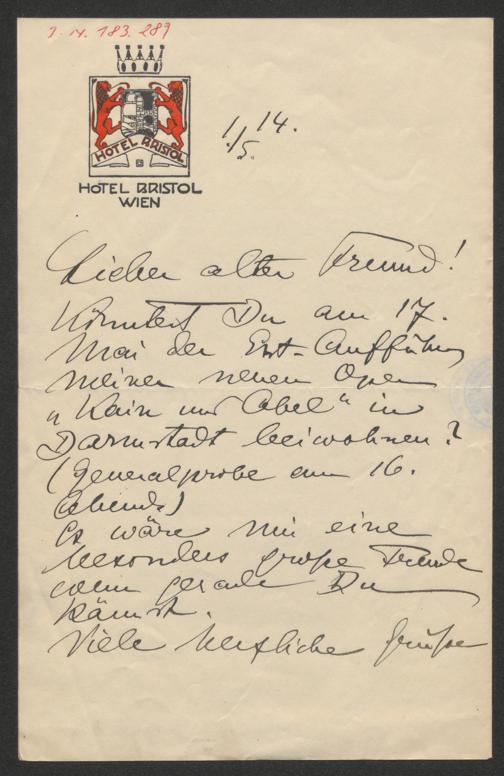 I.N. 183.289
HOTEL BRISTOL
HOTEL BRISTOL
WIEN
1./5. 14.
Lieber alter Freund!
Könntest Du am 17.
Mai der Erst-Aufführung
meiner neuen Oper
"Kain und Abel" in
Darmstadt beiwohnen?
(Generalprobe am 16.
abends)
Es wäre mir eine
besonders große Freude
wenn gerade Du
kämst.
Viele herzliche Grüße